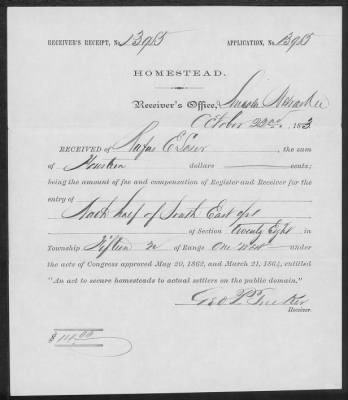 RECEIVER'S RECEIPT, No. 13985 APPLICATION, No. 13985
HOMESTEAD.
Receiver's Office, Lincoln Nebraska
October 22nd 1873
RECEIVED of Rufus E. the sum
of Fourteen dollars cents;
being the amount of fee and compensation of Register and Receiver for the
entry of
North half of South East qr
of Section Twenty Eight in
Township Fifteen N of Range One West under
the acts of Congress approved May 20, 1862, and March 21, 1864, entitled
"An act to secure homesteads to actual settlers on the public domain."
Geo P Tucker
Receiver.
$14.00